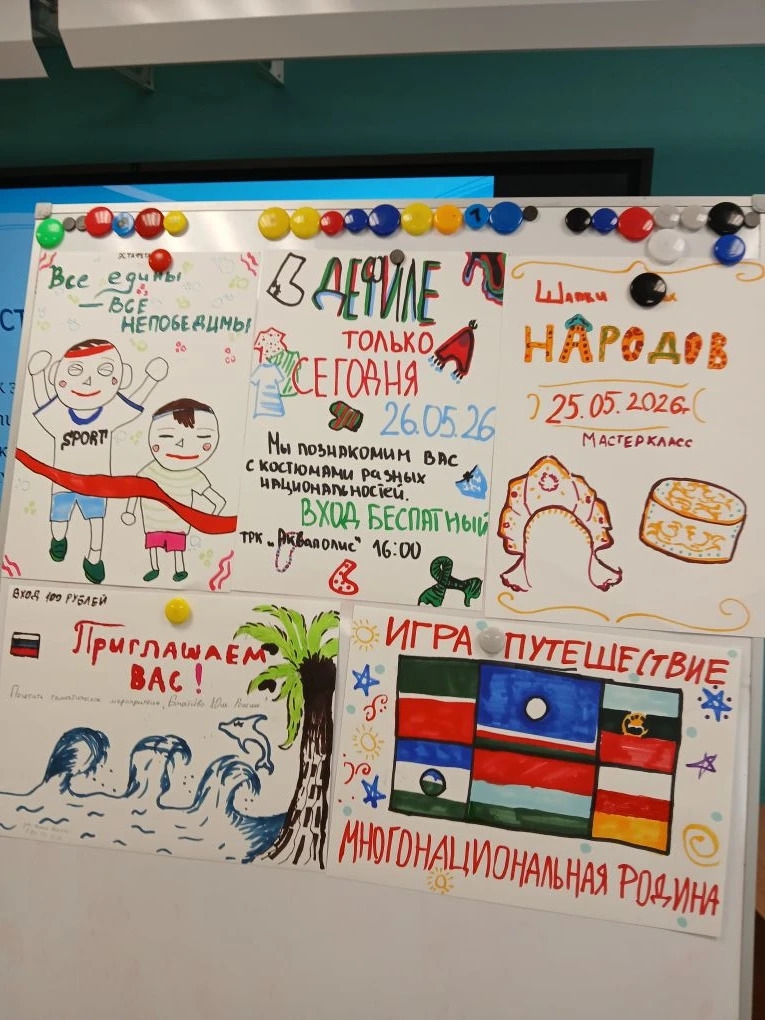 ЭСТАФЕТА
Все едины
— ВСЕ
НЕПОБЕДИМЫ
SPORT
ДЕФИЛЕ
ТОЛЬКО
СЕГОДНЯ
26.05.26
Мы познакомим вас
с костюмами разных
национальностей.
ВХОД БЕСПАТНЫЙ
ТРК „Акваполис" 16:00
Шапки
НАРОДОВ
25.05.2026г.
МАСТЕРКЛАСС
ВХОД 100 РУБЛЕЙ
Приглашаем
ВАС!
Посетить тематическое мероприятие „ Юга России
ИГРА ПУТЕШЕСТВИЕ
МНОГОНАЦИОНАЛЬНАЯ РОДИНА